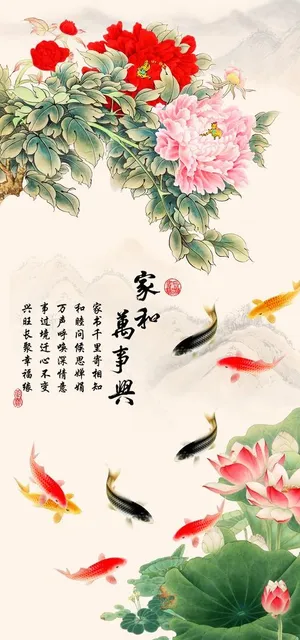 家和
萬事興
家书千里寄相知
和睦问候思婵娟
万声呼唤深情意
事过境迁心不变
兴旺长聚幸福缘